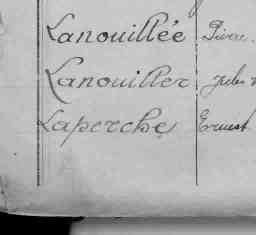 Lanouillée Pierre
Lanouiller Jules
Laperche Ernest